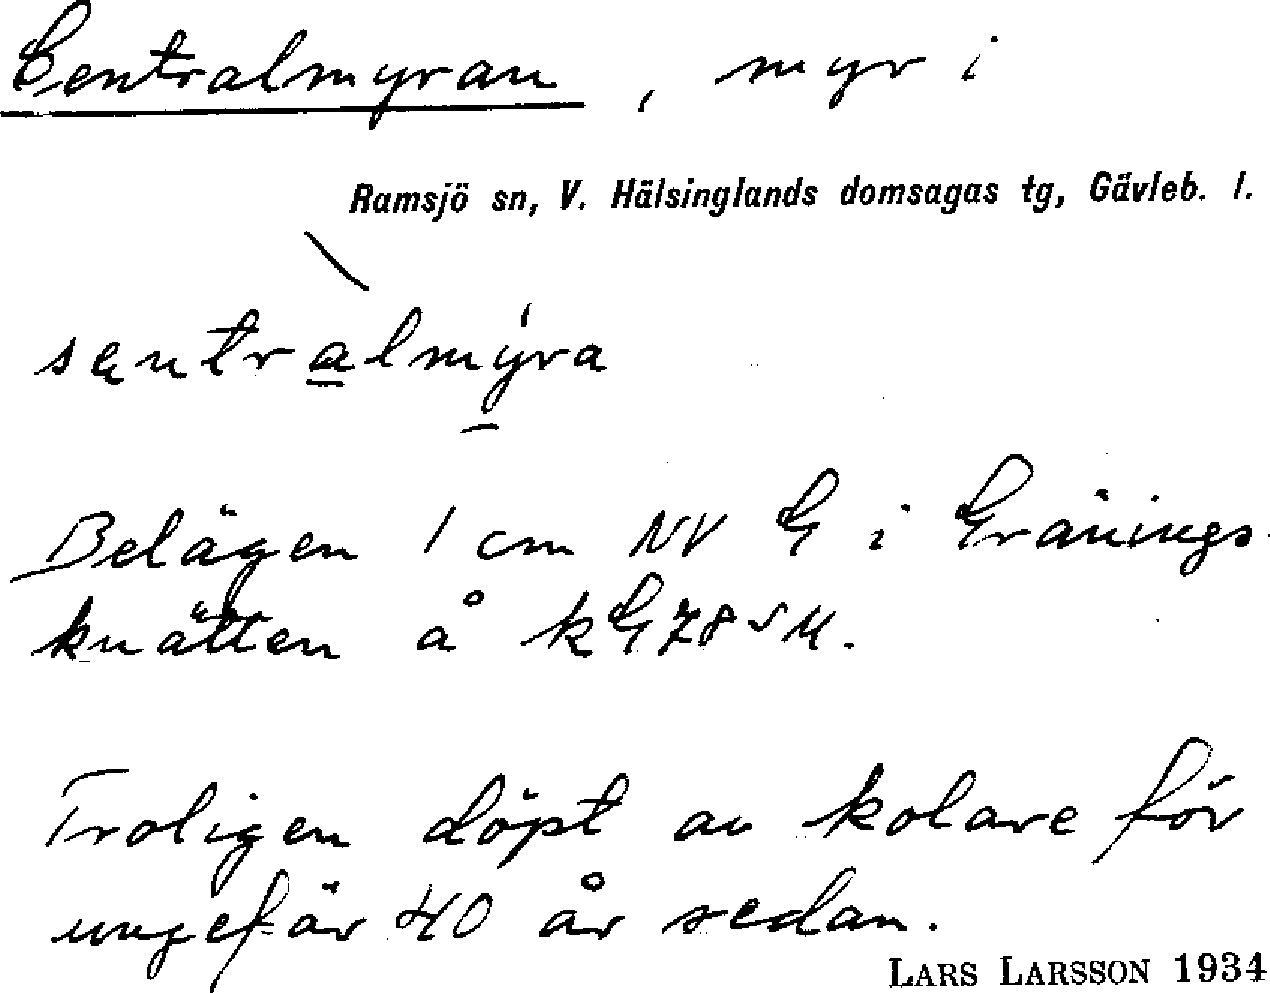 Centralmyran, myr i
Ramsjö sn, V. Hälsinglands domsagas tg, Gävleb. l.
sentralmýra
Belägen 1 cm NV G i Gränings
knätten å kG78SV.
Troligen döpt av kolare för
ungefär 40 år sedan.
LARS LARSSON 1934